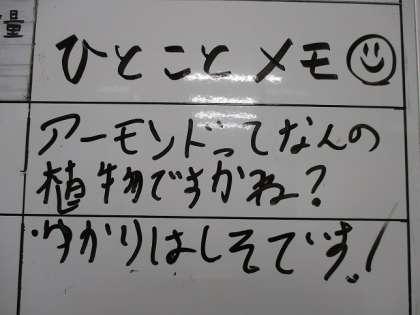 量
ひとことメモ
アーモンドってなんの
植物ですかね?
ゆかりはしそです!